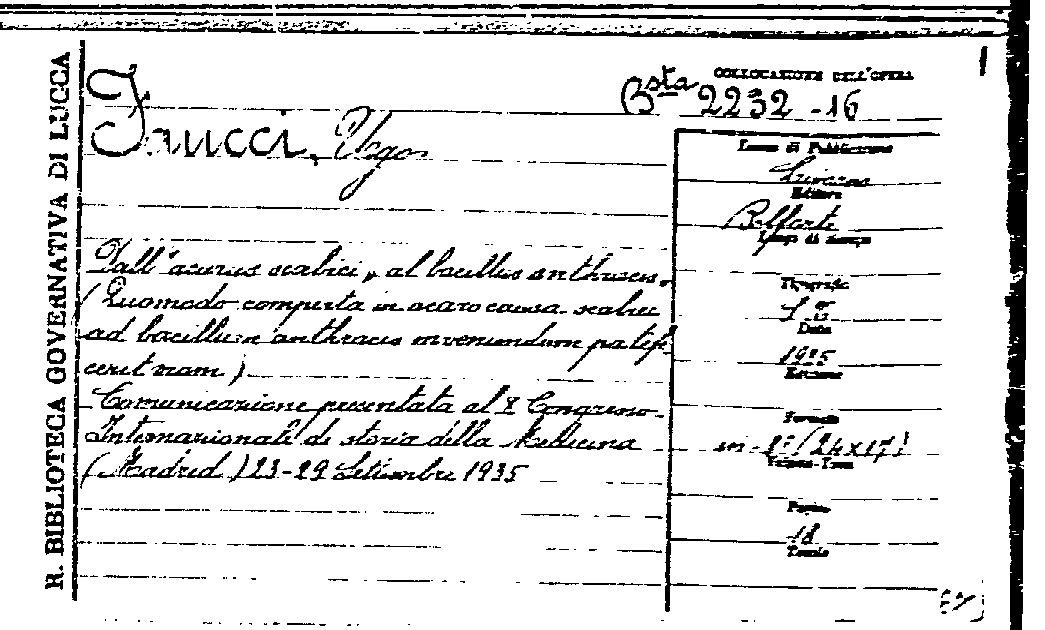 R. BIBLIOTECA GOVERNATIVA DI LUCCA
1
COLLOCAZIONE DELL'OPERA
Bsta 2232-16
Faucci, Ugo
Dall'"acarus scabiei" al bacillus anthracis.
(Quomodo comperta in acaro causa scabiei
ad bacillum anthracis inveniendum patefe
cerit viam)
Comunicazione presentata al X Congresso
Internazionale di storia della Medicina
(Madrid) 23-29 Settembre 1935
Luogo di Pubblicazione
Livorno
Editore
Belforte
Luogo di stampa
Tipografia
Data
1935
Edizione
Formato
in-8° (24x17)
Volume-Tomo
Pagine
18
Tavole